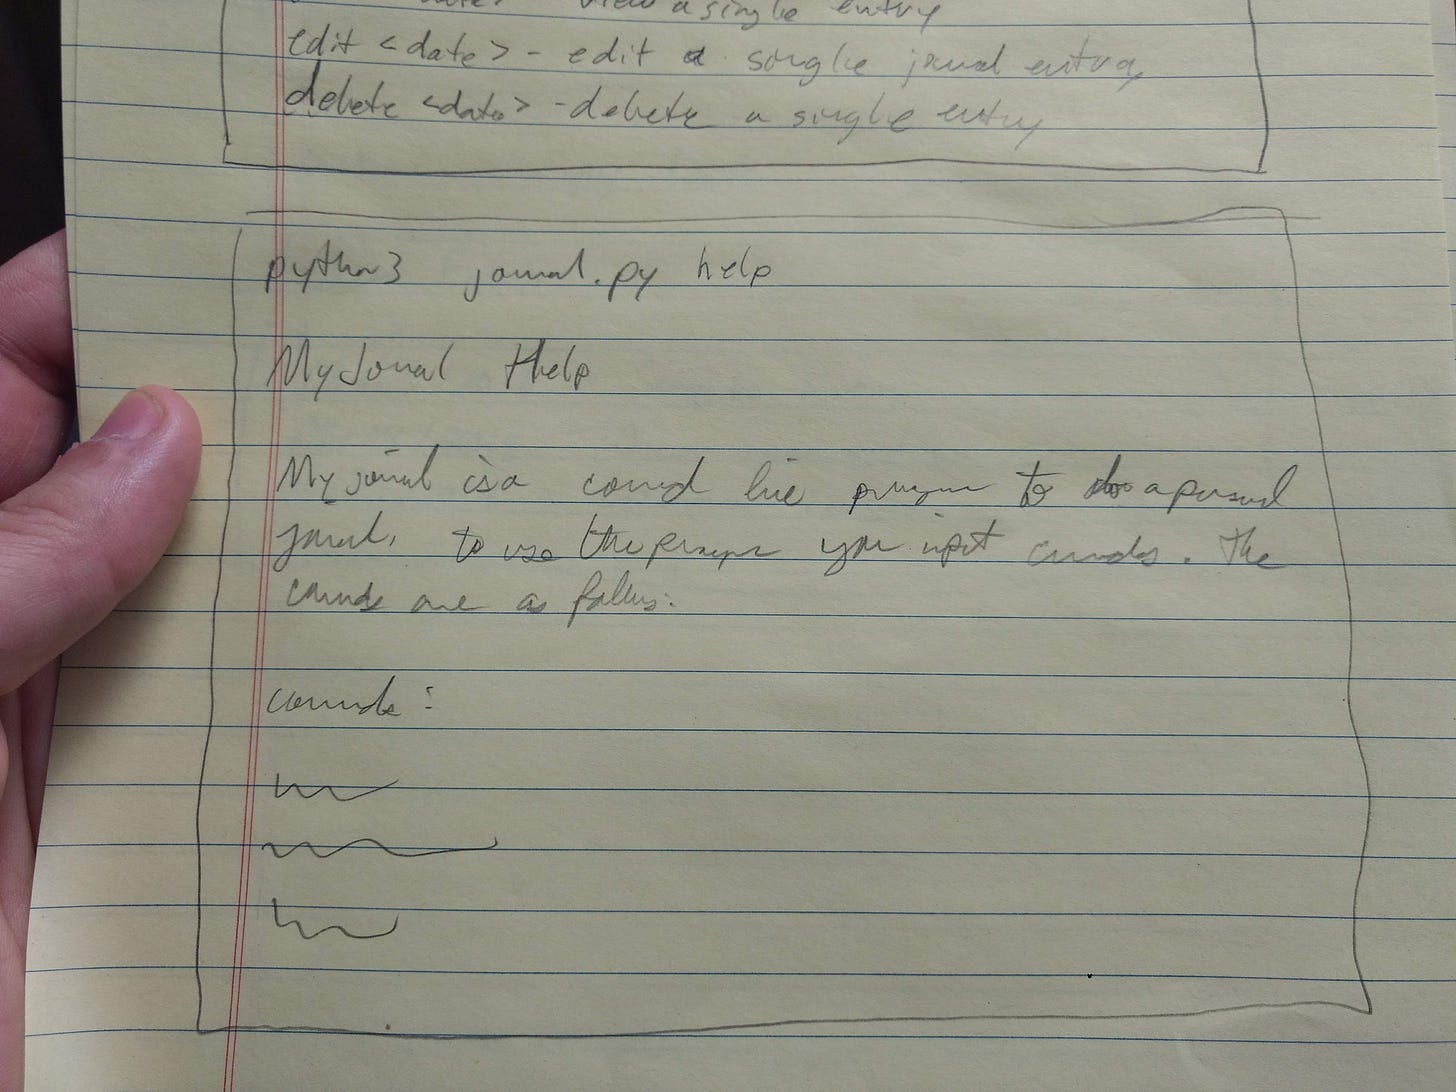 view a single entry
edit <date> - edit a single journal entry
delete <date> - delete a single entry
python3 journal.py help
MyJournal Help
My journal is a command line program to do a personal
journal, to use the program you input commands. The
commands are as follows:
commands: